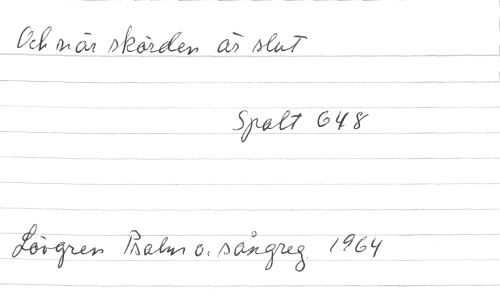 Och när skörden är slut
Spalt 648
Lövgren Psalm o. sångreg. 1964